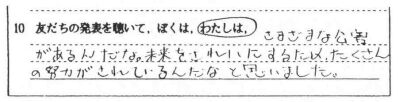 10 友だちの発表を聴いて，ぼくは，わたしは，
さまざまな公害
があるんだな。未来をきれいにするため、たくさん
の努力がされているんだなと思いました。